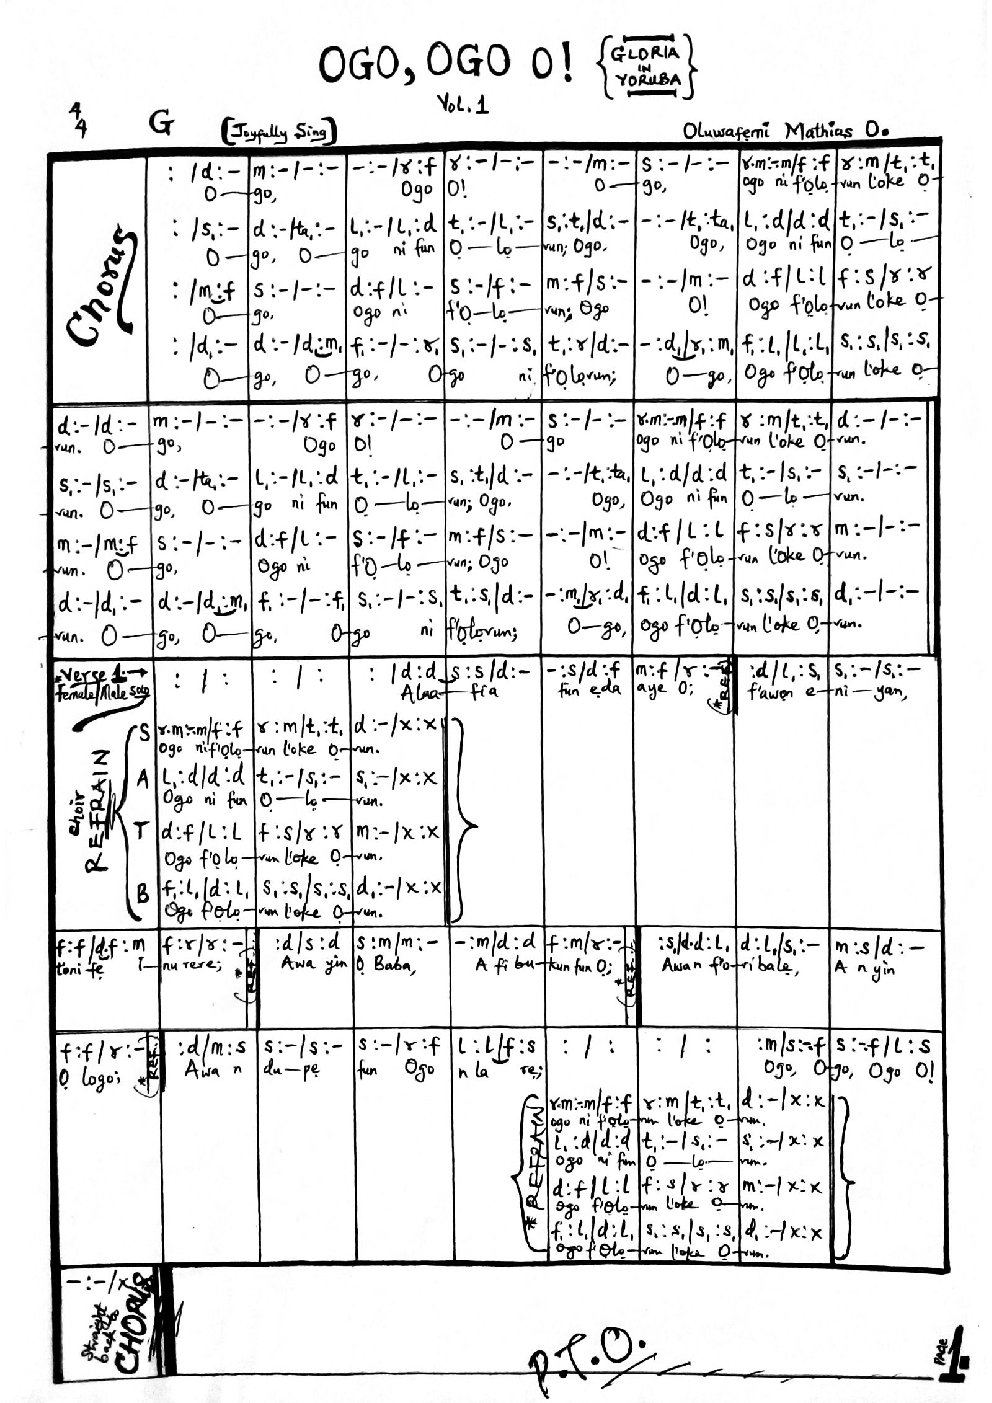 OGO, OGO O! {GLORIA IN YORUBA}
VOL. 1
4/4 G [Joyfully Sing] Oluwafemi Mathias O.
Chorus
: /d:- m:-/-:- -:-/r:f r:-/-:- -:-/m:- s:-/-:- r.m:-m/f:f r:m/t,:t,
O—go, Ogo O! O—go, Ogo ni f'Ọlọ-run l'oke O-
: /s,:- d:-/ta,:- l,:-/l,:d t,:-/l,:- s,:t,/d:- -:-/t,:ta, l,:d/d:d t,:-/s,:-
O—go, O—go ni fun Ọ—lọ—run; Ogo. Ogo, Ogo ni fun Ọ—lọ—
: /m:f s:-/-:- d:f/l:- s:-/f:- m:f/s:- -:-/m:- d:f/l:l f:s/r:r
O—go, Ogo ni f'Ọ—lọ—run; Ogo O! Ogo f'Ọlọ-run l'oke Ọ-
: /d,:- d:-/d,:m, f,:-/-:r, s,:-/-:s, t,:r/d:- -:d,/r,:m, f,:l,/l,:l, s,:s,/s,:s,
O—go, O—go, Ogo ni f'Ọlọrun; O—go, Ogo f'Ọlọ-run l'oke Ọ-
d:-/d:- m:-/-:- -:-/r:f r:-/-:- -:-/m:- s:-/-:- r.m:-m/f:f r:m/t,:t, d:-/-:-
run. O—go, Ogo O! O—go Ogo ni f'Ọlọ-run l'oke Ọ-run.
s,:-/s,:- d:-/ta,:- l,:-/l,:d t,:-/l,:- s,:t,/d:- -:-/t,:ta, l,:d/d:d t,:-/s,:- s,:-/-:-
run. O—go, O—go ni fun Ọ—lọ—run; Ogo. Ogo, Ogo ni fun Ọ—lọ—run.
m:-/m:f s:-/-:- d:f/l:- s:-/f:- m:f/s:- -:-/m:- d:f/l:l f:s/r:r m:-/-:-
run. O—go, Ogo ni f'Ọ—lọ—run; Ogo O! Ogo f'Ọlọ-run l'oke Ọ-run.
d:-/d,:- d:-/d,:m, f,:-/-:f, s,:-/-:s, t,:s,/d:- -:m,/r,:d, f,:l,/d:l, s,:s,/s,:s, d,:-/-:-
run. O—go, O—go, Ogo ni f'Ọlọrun; O—go, Ogo f'Ọlọ-run l'oke Ọ-run.
*Verse 1:→ : / : : / : : /d:d s:s/d:- -:s/d:f m:f/r:- :d/l,:s, s,:-/s,:-
female/Male solo Alaa-fia fun eda aye O; (*REF.) f'awọn e-ni-yan,
choir REFRAIN
S r.m:-m/f:f r:m/t,:t, d:-/x:x
Ogo ni f'Ọlọ-run l'oke Ọ-run.
A l,:d/d:d t,:-/s,:- s,:-/x:x
Ogo ni fun Ọ—lọ—run.
T d:f/l:l f:s/r:r m:-/x:x
Ogo f'Ọlọ-run l'oke Ọ-run.
B f,:l,/d:l, s,:s,/s,:s, d,:-/x:x
Ogo f'Ọlọ-run l'oke Ọ-run.
f:f/d.f:m f:r/r:- :d/s:d s:m/m:- -:m/d:d f:m/r:- :s,/d.d:l, d:l,/s,:- m:s/d:-
toni fẹ I-nu rere; (*REF.) Awa yin Ọ Baba, A fi bu-kun fun Ọ; (*REF.) Awan f'o-ribalẹ, A n yin
f:f/r:- :d/m:s s:-/s:- s:-/r:f l:l/f:s : / : : / : :m/s:-f s:-f/l:s
Ọ logo; (*REF.) Awa n du-pẹ fun Ogo n la rẹ; Ogo, O-go, Ogo O!
*REFRAIN
r.m:-m/f:f r:m/t,:t, d:-/x:x
ogo ni f'Ọlọ-run l'oke Ọ-run.
l,:d/d:d t,:-/s,:- s,:-/x:x
Ogo ni fun Ọ—lọ—run.
d:f/l:l f:s/r:r m:-/x:x
Ogo f'Ọlọ-run l'oke Ọ-run.
f,:l,/d:l, s,:s,/s,:s, d,:-/x:x
Ogo f'Ọlọ-run l'oke Ọ-run.
-:-/x
Straight back to CHORUS
P.T.O.
PAGE 1.